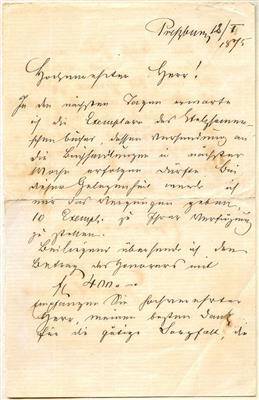 Preßburg 12/I
1875
Hochgeehrter Herr!
In den nächsten Tagen erwarte
ich die Exemplare des Stelzhamer-
schen buches, dessen Versendung an
die Buchhandlungen in nächster
Woche erfolgen dürfte. Bei
dieser Gelegenheit werde ich
mir das Vergnügen geben,
10 Exempl. zu Ihrer Verfügung
zu stellen.
Beiliegend übersende ich den
Betrag des Honorars mit
fl 400.—
Empfangen Sie hochgeehrter
Herr, meinen besten Dank
für die gütige Sorgfalt, die